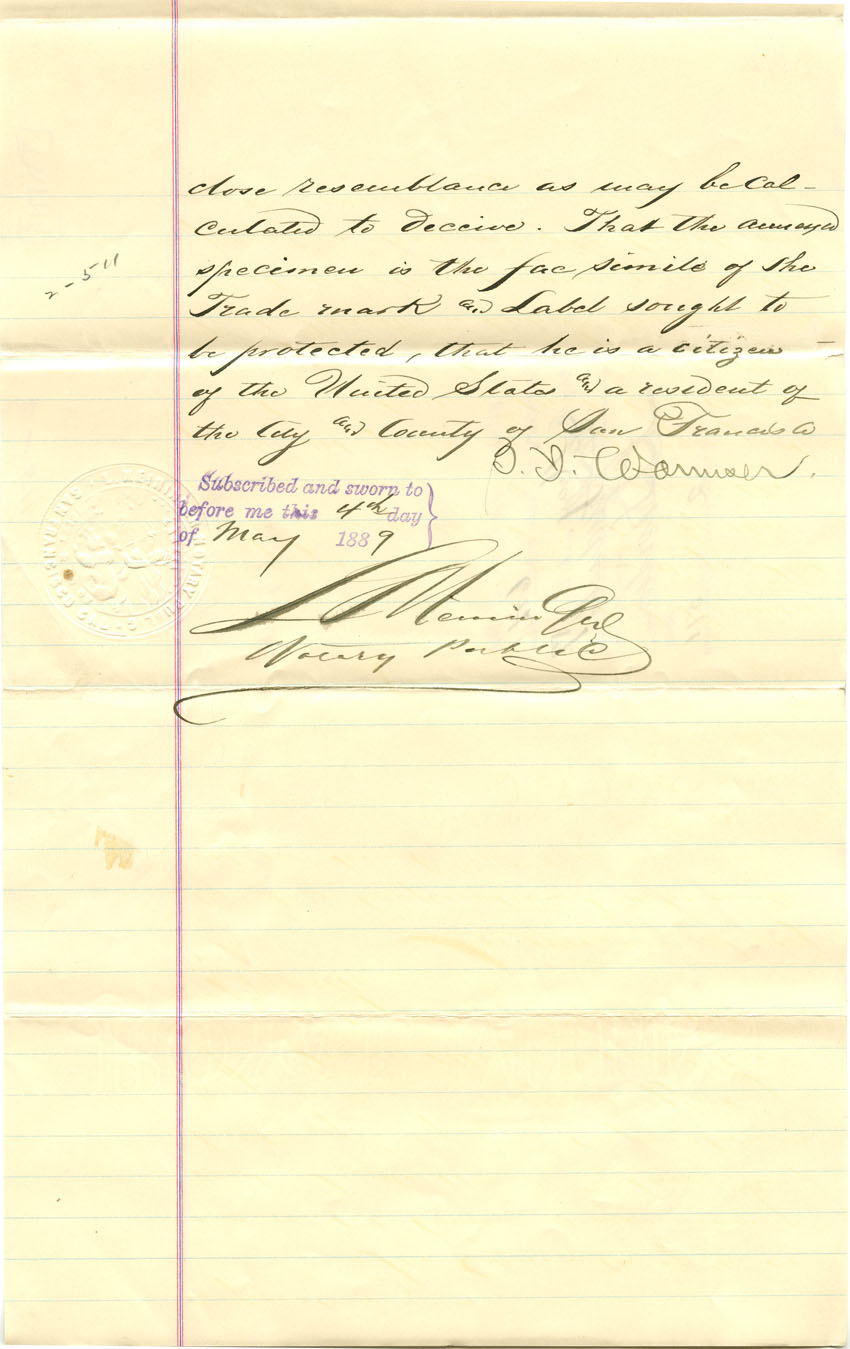 close resemblance as may be Cal-
culated to Deceive. That the annexed
specimen is the fac simile of the
Trade mark and Label sought to
be protected, that he is a citizen
of the United States and a resident of
the City and County of San Francisco
2-5-11
Subscribed and sworn to
before me this 4th day
of May 1889
Notary Public